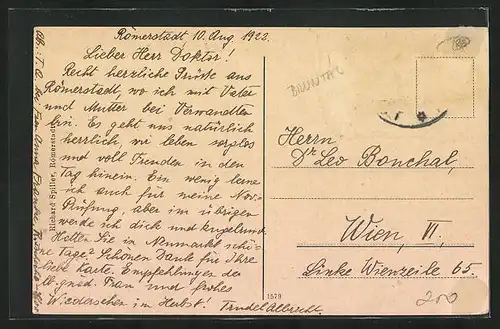 Römerstadt, 10. Aug. 1923.
Lieber Herr Doktor!
Recht herzliche Grüße aus
Römerstadt, wo ich mit Vater
und Mutter bei Verwandten
bin. Es geht uns natürlich
herrlich, wir leben sorglos
und voll Freuden in den
Tag hinein. Ein wenig lerne
ich auch für meine
Prüfung, aber im übrigen
werde ich dick und kugelrund.
Hatten Sie in Neumarkt schö-
ne Tage? Schönen Dank für Ihre
liebe Karte. Empfehlungen der
gnäd. Frau und frohes
Wiedersehen im Herbst! Trudel Albrecht.
Richard Spiller, Römerstadt
1579
BRUNTAL
Herrn
Dr Leo Bonchal,
Wien, VI.
Linke Wienzeile 65.
200